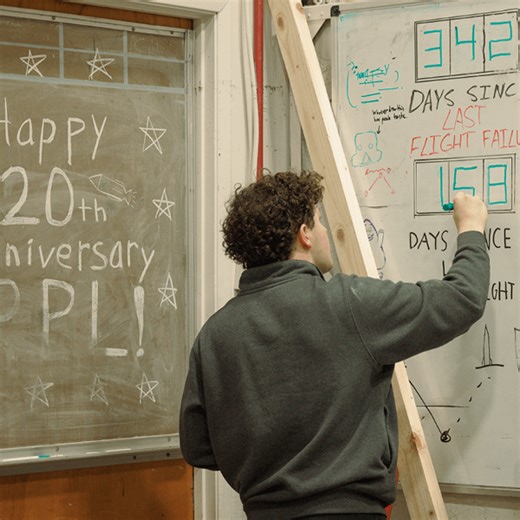 Happy
20th
nniversary
PPL!
342
DAYS SINC
LAST
FLIGHT FAILU
158
DAYS SINCE
IGHT